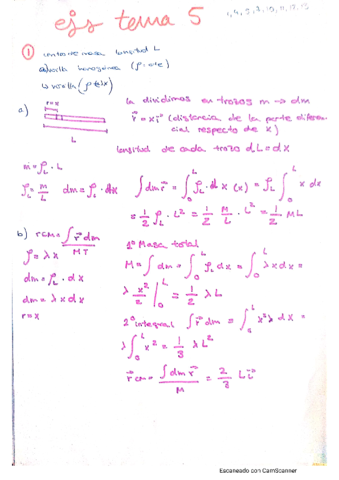 ejs tema 5
① centro de masa longitud L
a) varilla homogénea (ρ = cte)
b) varilla (ρ = λx)
a)
r=x
L
la dividimos en trozos m → dm
r⃗ = x i⃗ (distancia de la parte diferen
cial respecto de x)
longitud de cada trozo dL = dx
m = ρL · L
ρL = m/L   dm = ρL · dx   ∫dm r⃗ = ∫₀ᴸ ρL · dx (x) = ρL ∫₀ᴸ x dx
= 1/2 ρL · L² = 1/2 m/L · L² = 1/2 ML
b) rCM = ∫ r⃗ dm / MT
ρ = λx
dm = ρL · dx
dm = λ x dx
r = x
1º Masa total
M = ∫ dm = ∫₀ᴸ ρL dx = ∫₀ᴸ λ x dx =
λ x²/2 |₀ᴸ = 1/2 λ L
2º integral ∫ r⃗ dm = ∫₀ᴸ x² λ dx =
λ ∫₀ᴸ x² = 1/3 λ L²
r⃗ cm = ∫ dm r⃗ / M = 2/3 L i⃗
Escaneado con CamScanner